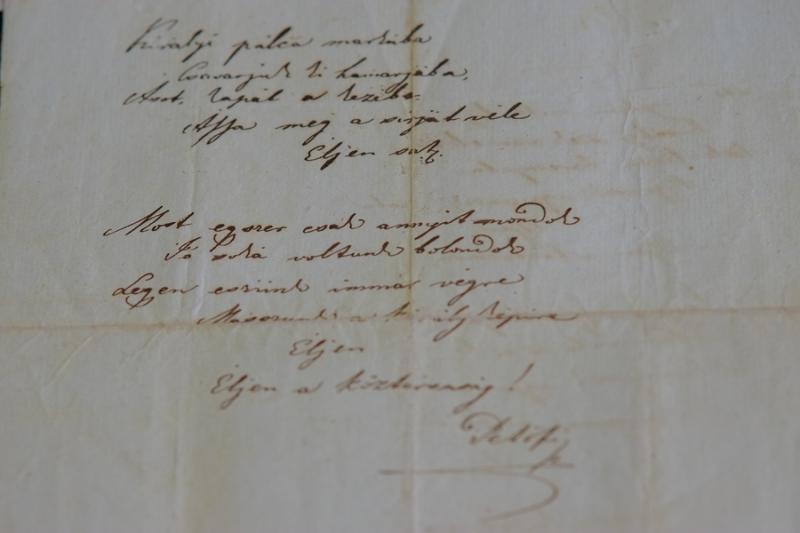 Királyi pálca markába
Csavarjuk ki hamarjába,
Ásót, kapát a kezébe
Ássa meg a sirját véle
Éljen satz.
Most egszer csak annyit mondok
Jó soká voltunk bolondok
Legen eszünk immár végre
Másszunk a király képire
Éljen
Éljen a köztársaság!
Petőfi